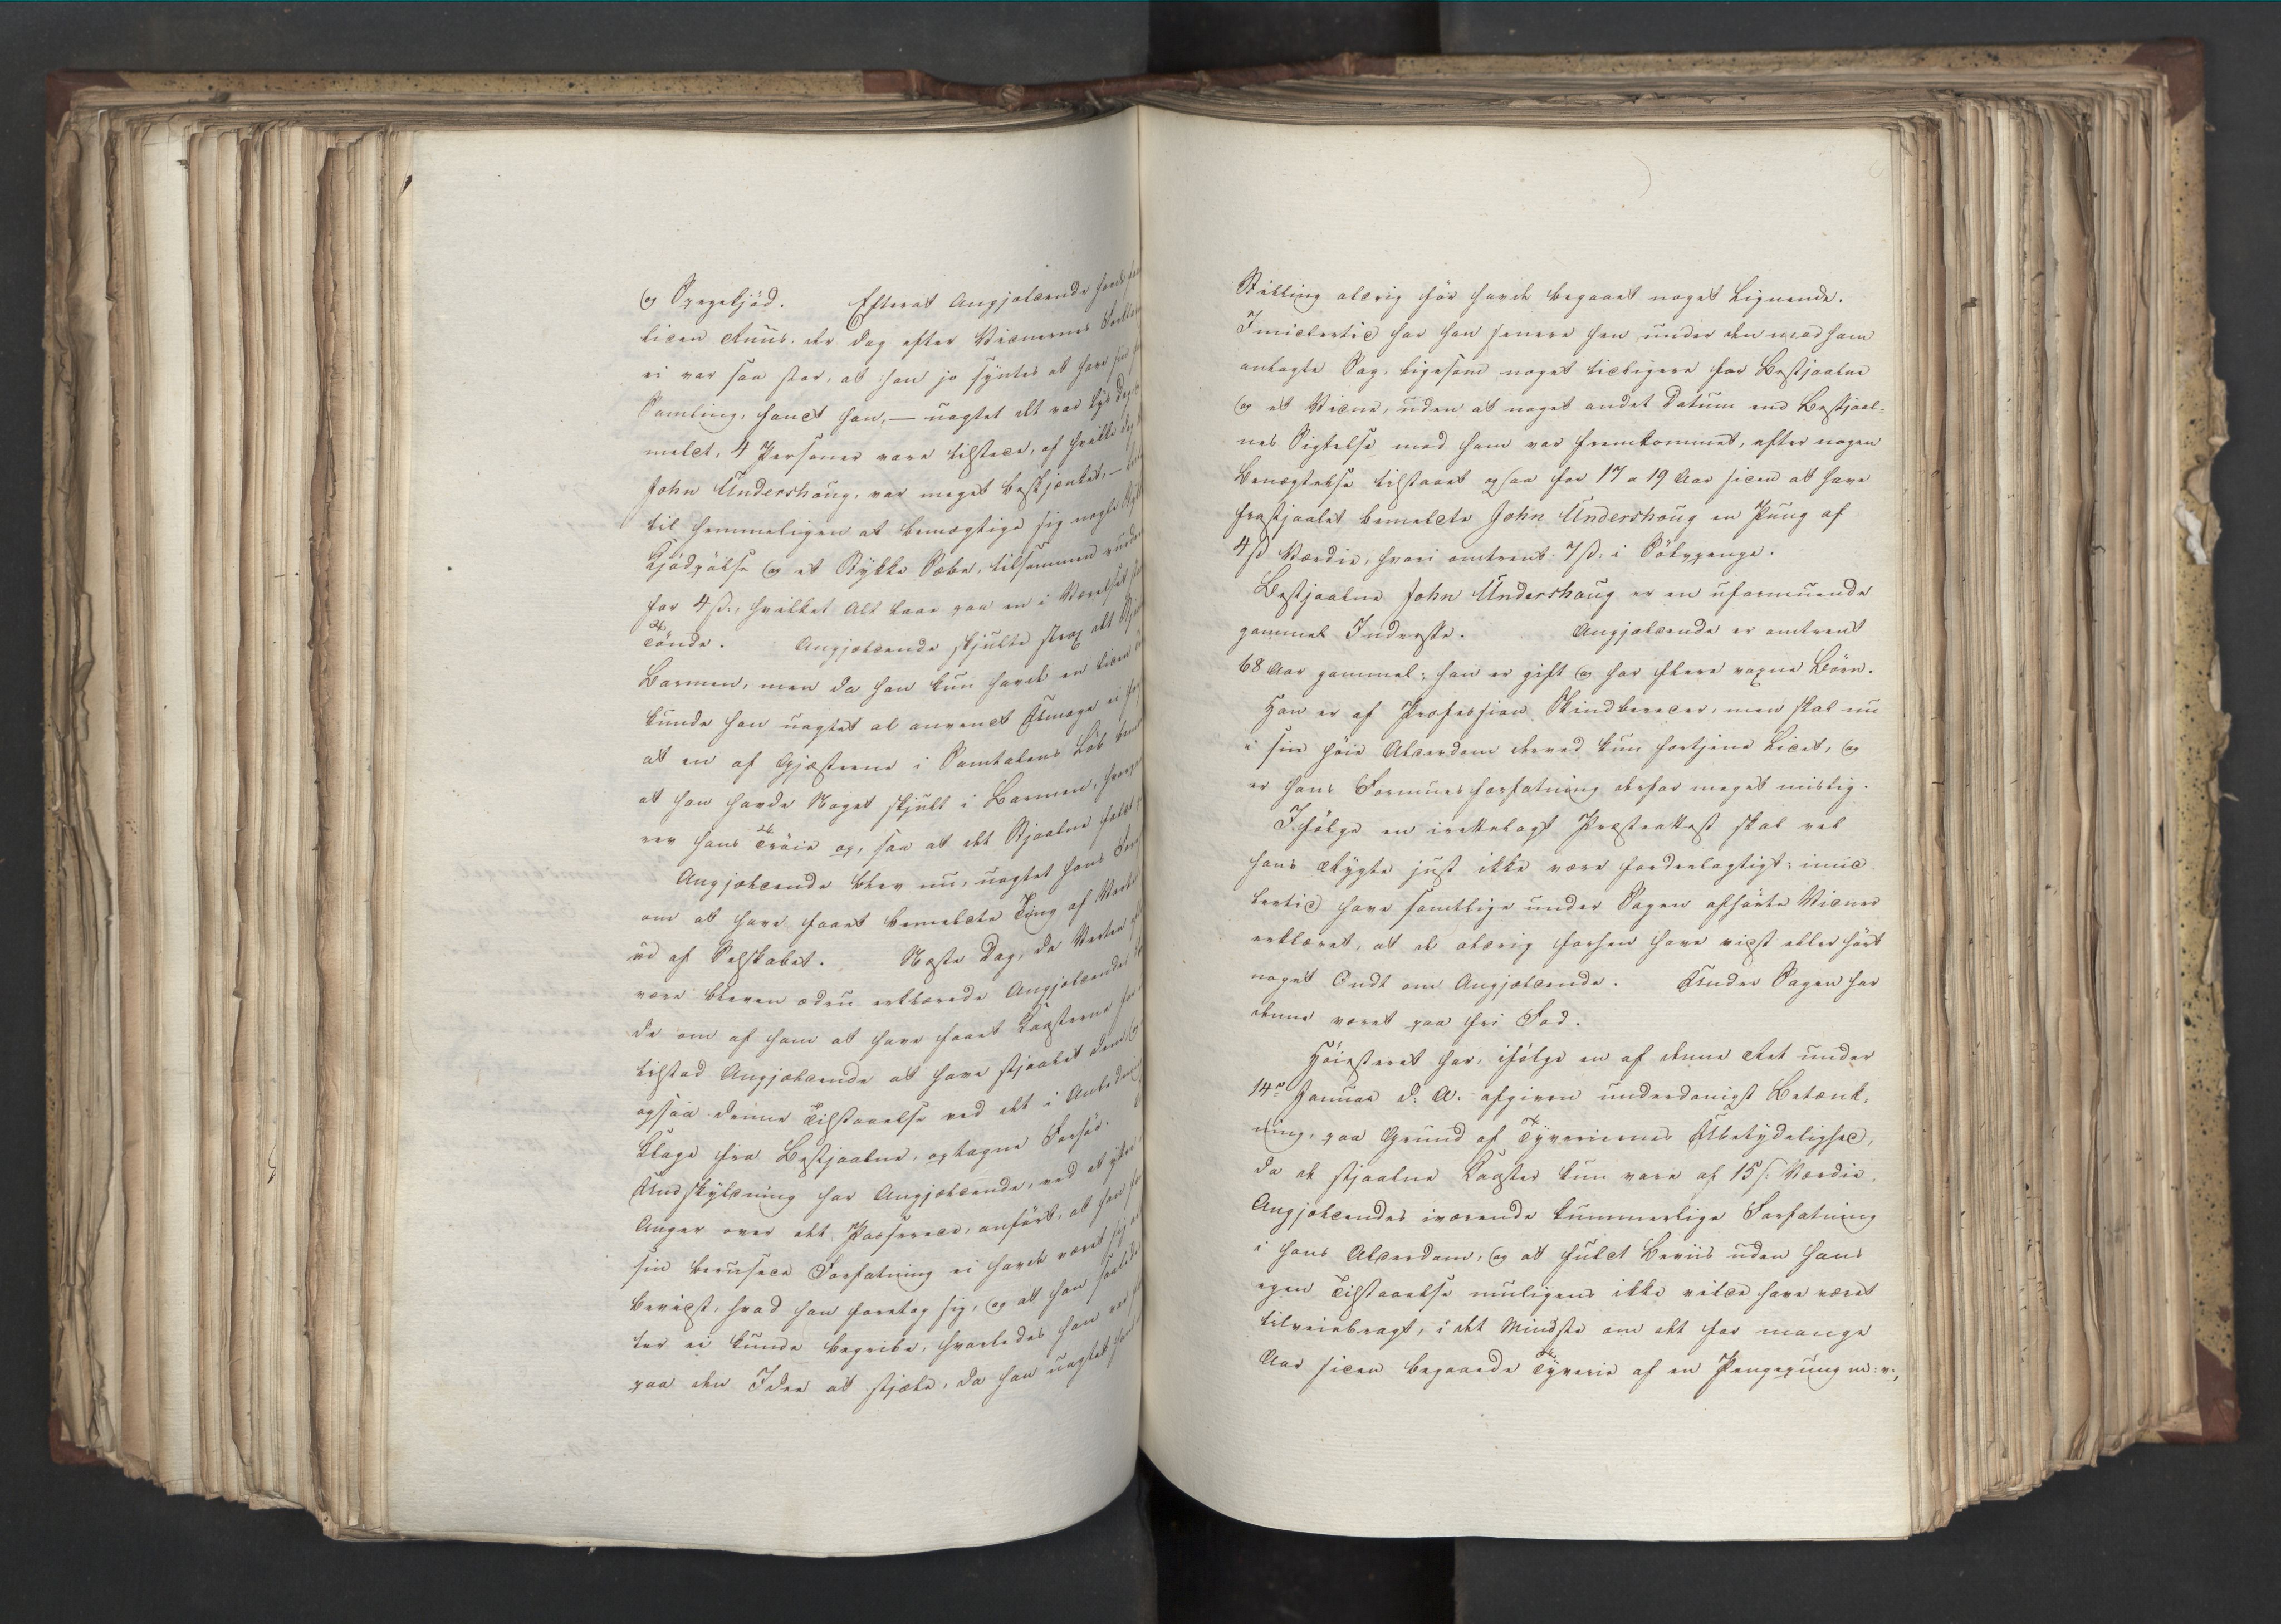 og Spegekjöd. Efterat Angjeldende havde
liden Ruus, der dog efter Vidnernes Forkla
ei var saa stor, at han jo syntes at have sin
Samling, fandt han, — uagtet det var lys Dag
meldt, 4 Personer vare tilstede, af hvilke dog
John Undershoug, var meget beskjænket, —
til hemmeligen at bemægtige sig nogle
Kjödpölse og et Stykke Sæbe, tilsammen vurde
for 4 ß., hvilket Alt laae paa en i Værelset
Tönde. Angjeldende skjulte strax det Stjaa
Barmen, men da han kun havde en liden
kunde han uagtet al anvendt Umage ei
at en af Gjæsterne i Samtalens Löb
at han havde Noget skjult i Barmen, hvorpaa
rev hans Tröie op, saa at det Stjaalne faldt
Angjeldende blev nu, uagtet hans
om at have faaet bemeldte Ting af Værten
ud af Selskabet. Næste Dag, da Verten
være bleven ædru erklærede Angjeldendes
de om af ham at have faaet Kosterne for
tilstod Angjeldende at have stjaalet dem og
ogsaa denne Tilstaaelse ved det i Anledning
Klage fra Bestjaalne, optagne Forhör.
Undskyldning har Angjeldende, ved at yttre
Anger over det Passerede, anfört, at han
sin berusede Forfatning ei havde været sig
bevidst, hvad han foretog sig, og at han
ter ei kunde begribe, hvorledes han var
paa den Idee at stjæle, da han uagtet
Stilling aldrig för havde begaaet noget Lignende.
Imidlertid har han senere hen under den mod ham
anlagte Sag, ligesom noget tidligere for Bestjaalne
og et Vidne, uden at noget andet Datum end Bestjaal-
nes Sigtelse mod ham var fremkommet, efter nogen
Benægtelse tilstaaet ogsaa for 17 a 19 Aar siden at have
frastjaalet bemeldte John Undershoug en Pung af
4 ß Værdie, hvori omtrent 7 ß: i Sölvpenge.
Bestjaalne John Undershoug er en uformuende
gammel Inderste. Angjeldende er omtrent
68 Aar gammel; han er gift og har flere voxne Börn.
Han er af Profession Skindbereder, men skal nu
i sin höie Alderdom derved kun fortjene Lidet, og
er hans Formuesforfatning derfor meget mislig.
Ifölge en irettelagt Præsteattest skal vel
hans Rygte just ikke være fordeelagtigt; imid
lertid have samtlige under Sagen afhörte Vidner
erklæret, at de aldrig forhen have vidst eller hört
noget Ondt om Angjeldende. Under Sagen har
denne været paa fri Fod.
Höiesteret har, ifölge en af denne Ret under
14de Januar d: A. afgiven underdanigst Betænk-
ning, paa Grund af Tyveriernes Ubetydelighed,
da de stjaalne Koster kun vare af 15 ß: Værdie,
Angjeldendes iværende kummerlige Forfatning
i hans Alderdom, og at fuldt Beviis uden hans
egen Tilstaaelse muligens ikke vilde have været
tilveiebragt, i det Mindste om det for mange
Aar siden begaaede Tyverie af en Pengepung m: v:,